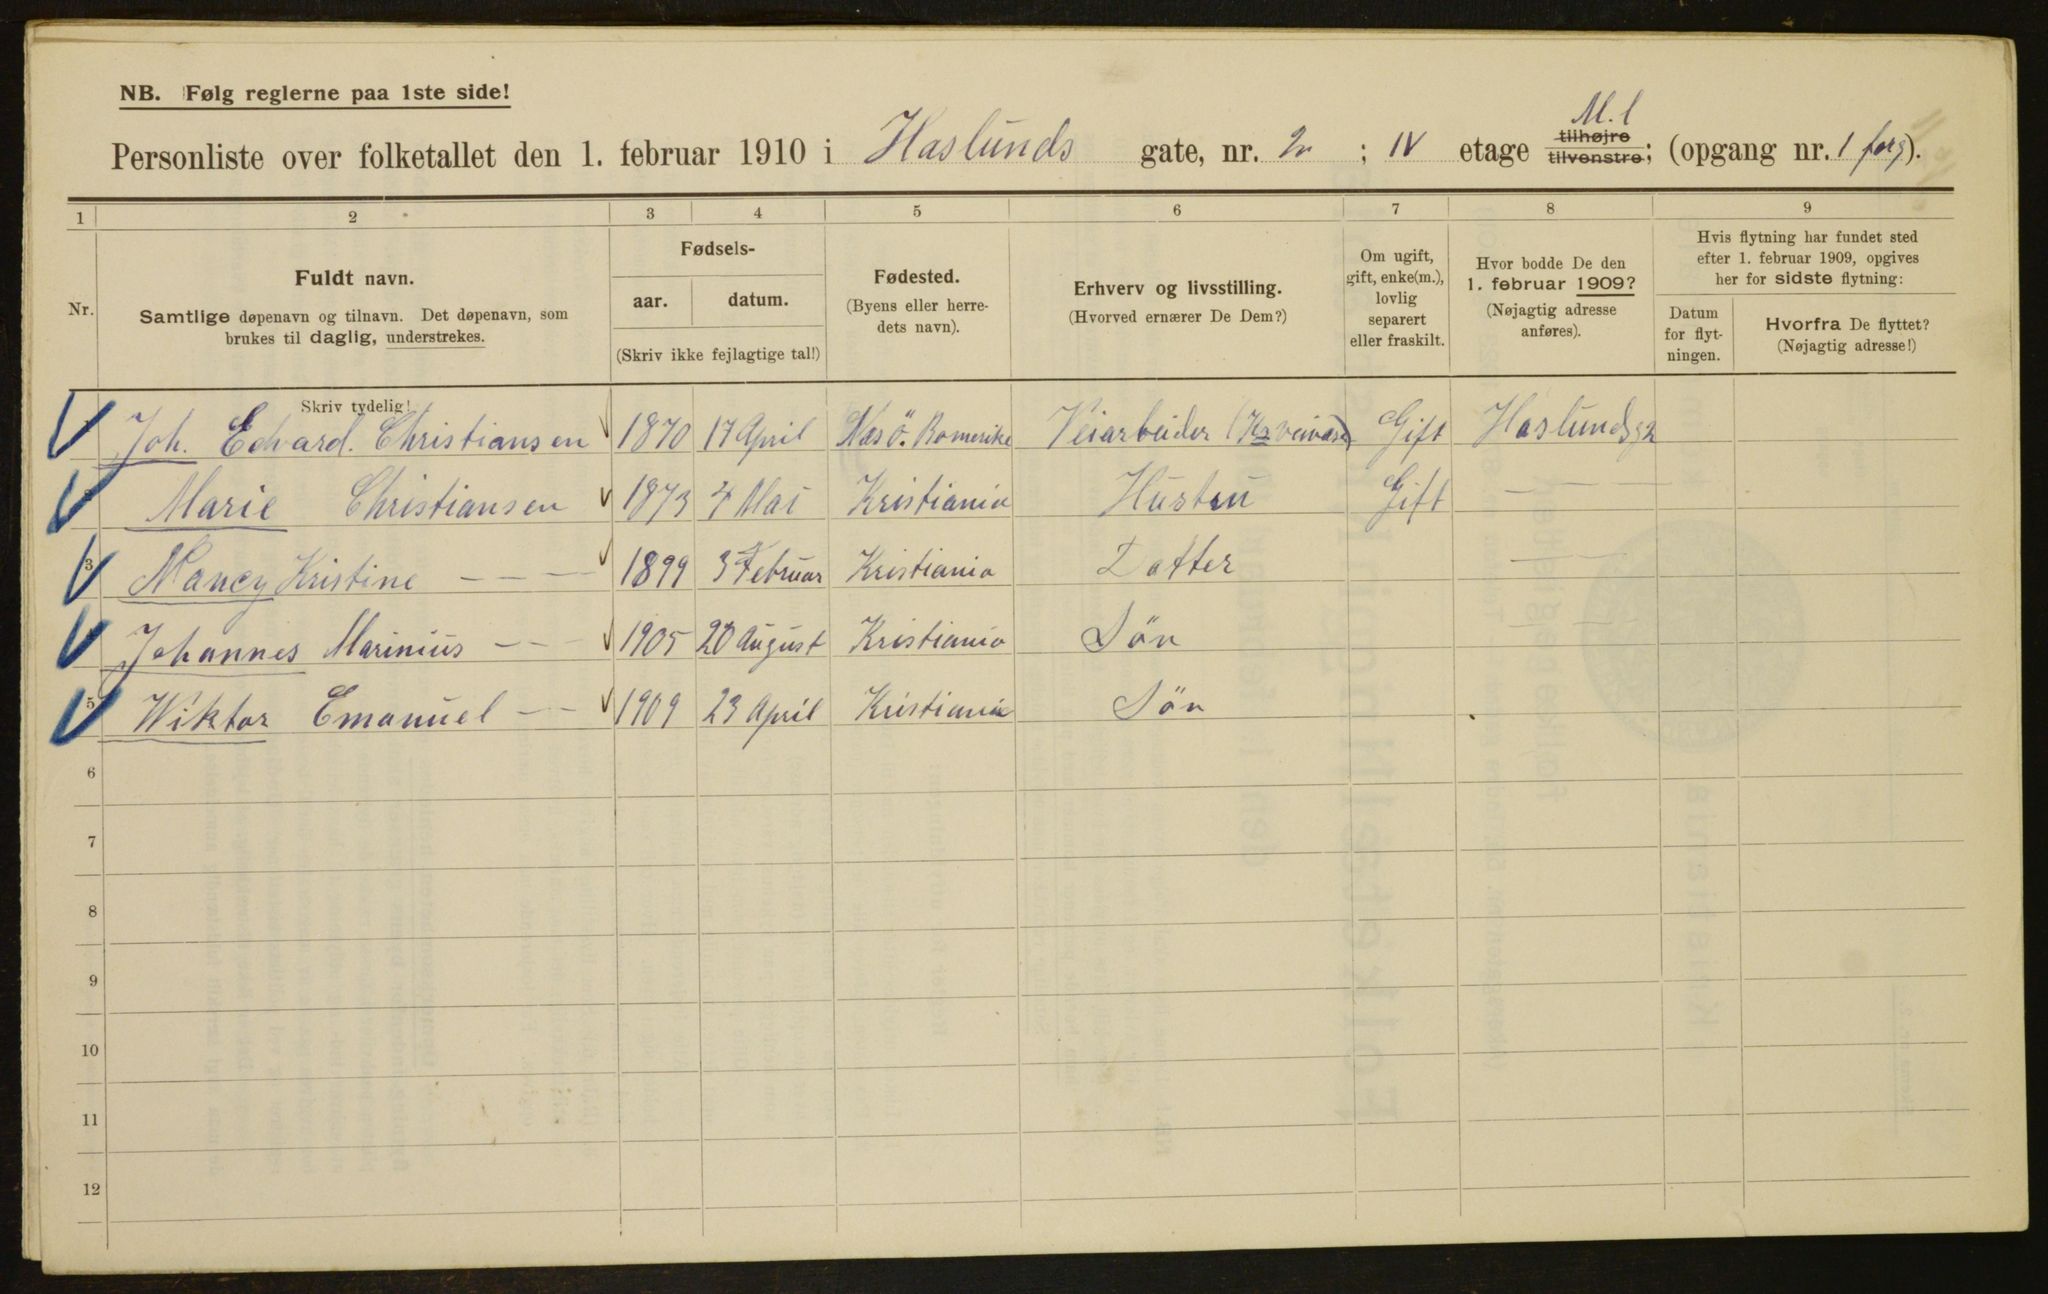 NB. Følg reglerne paa 1ste side!
M. l
Personliste over folketallet den 1. februar 1910 i Haslunds gate, nr. 2 ; IV etage tilhøjre tilvenstre; (opgang nr. 1 forg).
1 2 3 4 5 6 7 8 9
Nr.
Fuldt navn.
Samtlige døpenavn og tilnavn. Det døpenavn, som
brukes til daglig, understrekes.
Fødsels-
aar. datum.
(Skriv ikke fejlagtige tal!)
Fødested.
(Byens eller herre-
dets navn).
Erhverv og livsstilling.
(Hvorved ernærer De Dem?)
Om ugift,
gift, enke(m.),
lovlig
separert
eller fraskilt.
Hvor bodde De den
1. februar 1909?
(Nøjagtig adresse
anføres).
Hvis flytning har fundet sted
efter 1. februar 1909, opgives
her for sidste flytning:
Datum
for flyt-
ningen.
Hvorfra De flyttet?
(Nøjagtig adresse!)
Skriv tydelig!
Joh. Edvard. Christiansen 1870 17 April Næs ö. Romerike Veiarbeider Gift Haslundsg 2
Marie Christiansen 1873 4 Mai Kristiania Hustru Gift — — —
3 Nancy Kristine — — — 1899 3 Februar Kristiania Datter — — —
Johannes Marinius — — — 1905 20 August Kristiania Sön — — —
5 Wiktor Emanuel — — 1909 23 April Kristiania Sön
6
7
8
9
10
11
12